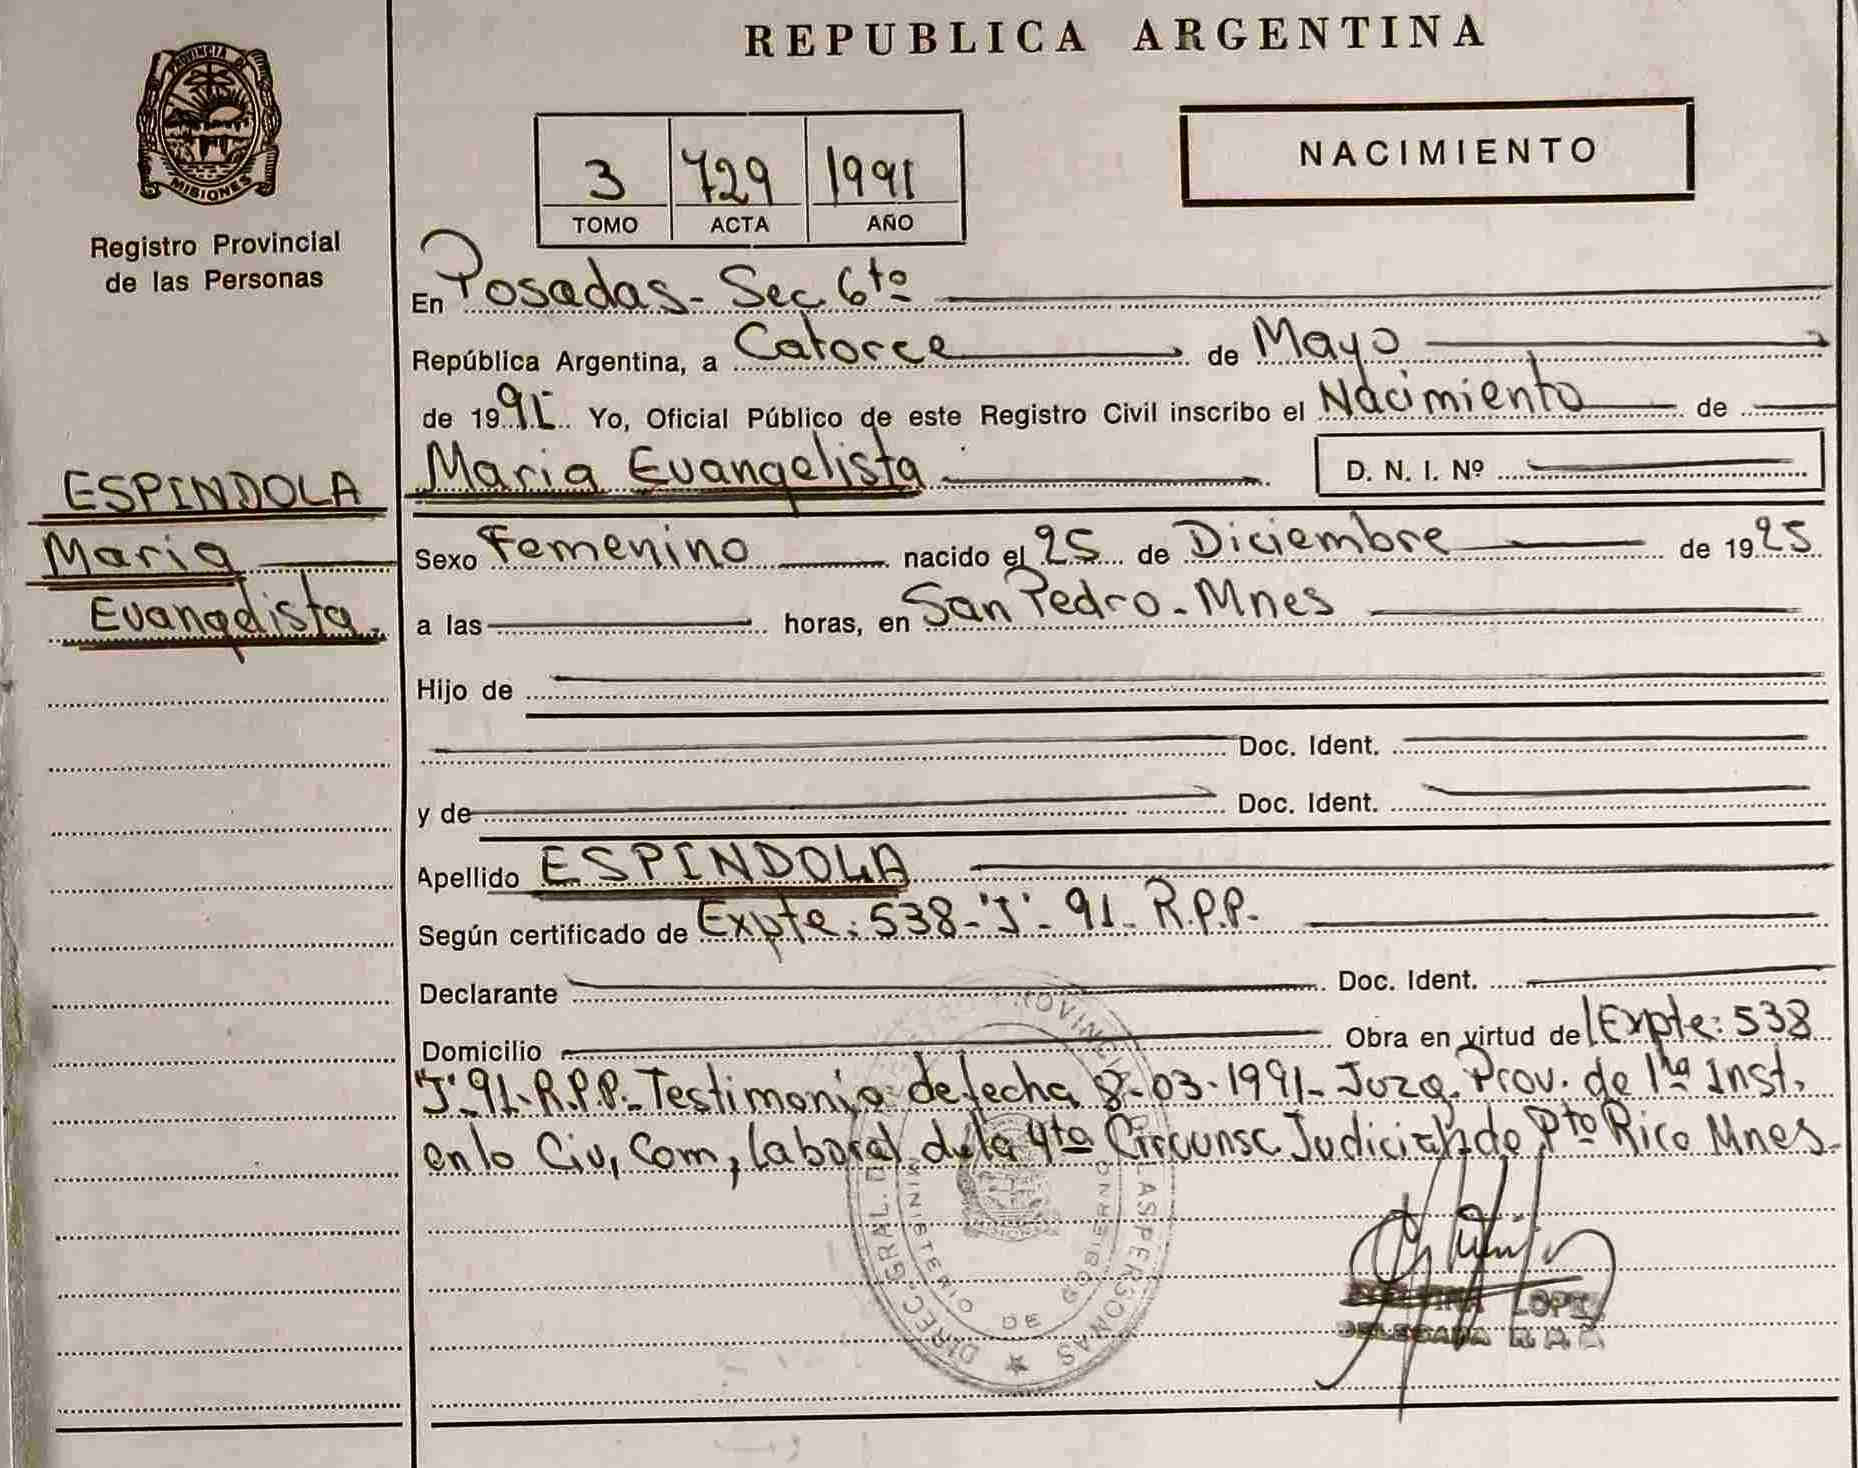 REPUBLICA ARGENTINA
PROVINCIA DE
MISIONES
Registro Provincial
de las Personas
NACIMIENTO
3 729 1991
TOMO ACTA AÑO
En Posadas - Sec. 6ta
República Argentina, a Catorce de Mayo
de 1991 Yo, Oficial Público de este Registro Civil inscribo el Nacimiento de
Maria Evangelista D. N. I. Nº
ESPINDOLA
Maria
Evangelista.
Sexo Femenino nacido el 25 de Diciembre de 1925
a las horas, en San Pedro - Mnes
Hijo de
Doc. Ident.
y de Doc. Ident.
Apellido ESPINDOLA
Según certificado de Expte: 538-"J"- 91- R.P.P.-
Declarante Doc. Ident.
Domicilio Obra en virtud del Expte: 538
"J"-91-R.P.P.- Testimonio de fecha 8-03-1991- Juzg. Prov. de 1ra Inst.
en lo Civ, Com, laboral de la 4ta Circunsc Judicial de Pto Rico Mnes.
DIREC. GRAL. PROVINCIAL LAS PERSONAS
MINISTERIO DE GOBIERNO
LOPEZ
DELEGADA